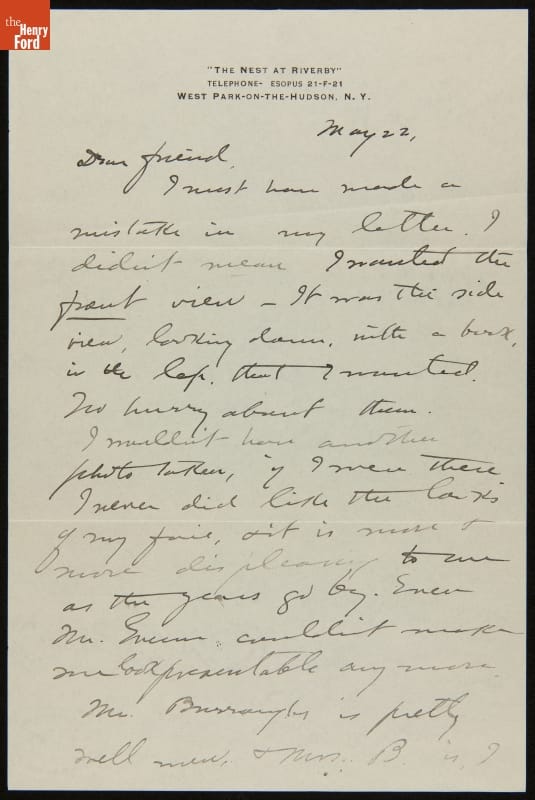 the
Henry
Ford
"THE NEST AT RIVERBY"
TELEPHONE- ESOPUS 21-F-21
WEST PARK-ON-THE-HUDSON, N. Y.
May 22,
Dear friend,
I must have made a
mistake in my letter. I
didn't mean I wanted the
front view – It was the side
view, looking down, with a book,
in the lap, that I wanted.
No hurry about them.
I wouldn't have another
photo taken, if I were there
I never did like the looks
of my face, & it is more &
more displeasing to me
as the years go by. Even
Mr. couldn't make
me look presentable any more.
Mr. Burroughs is pretty
well now, & Mrs. B. is, I